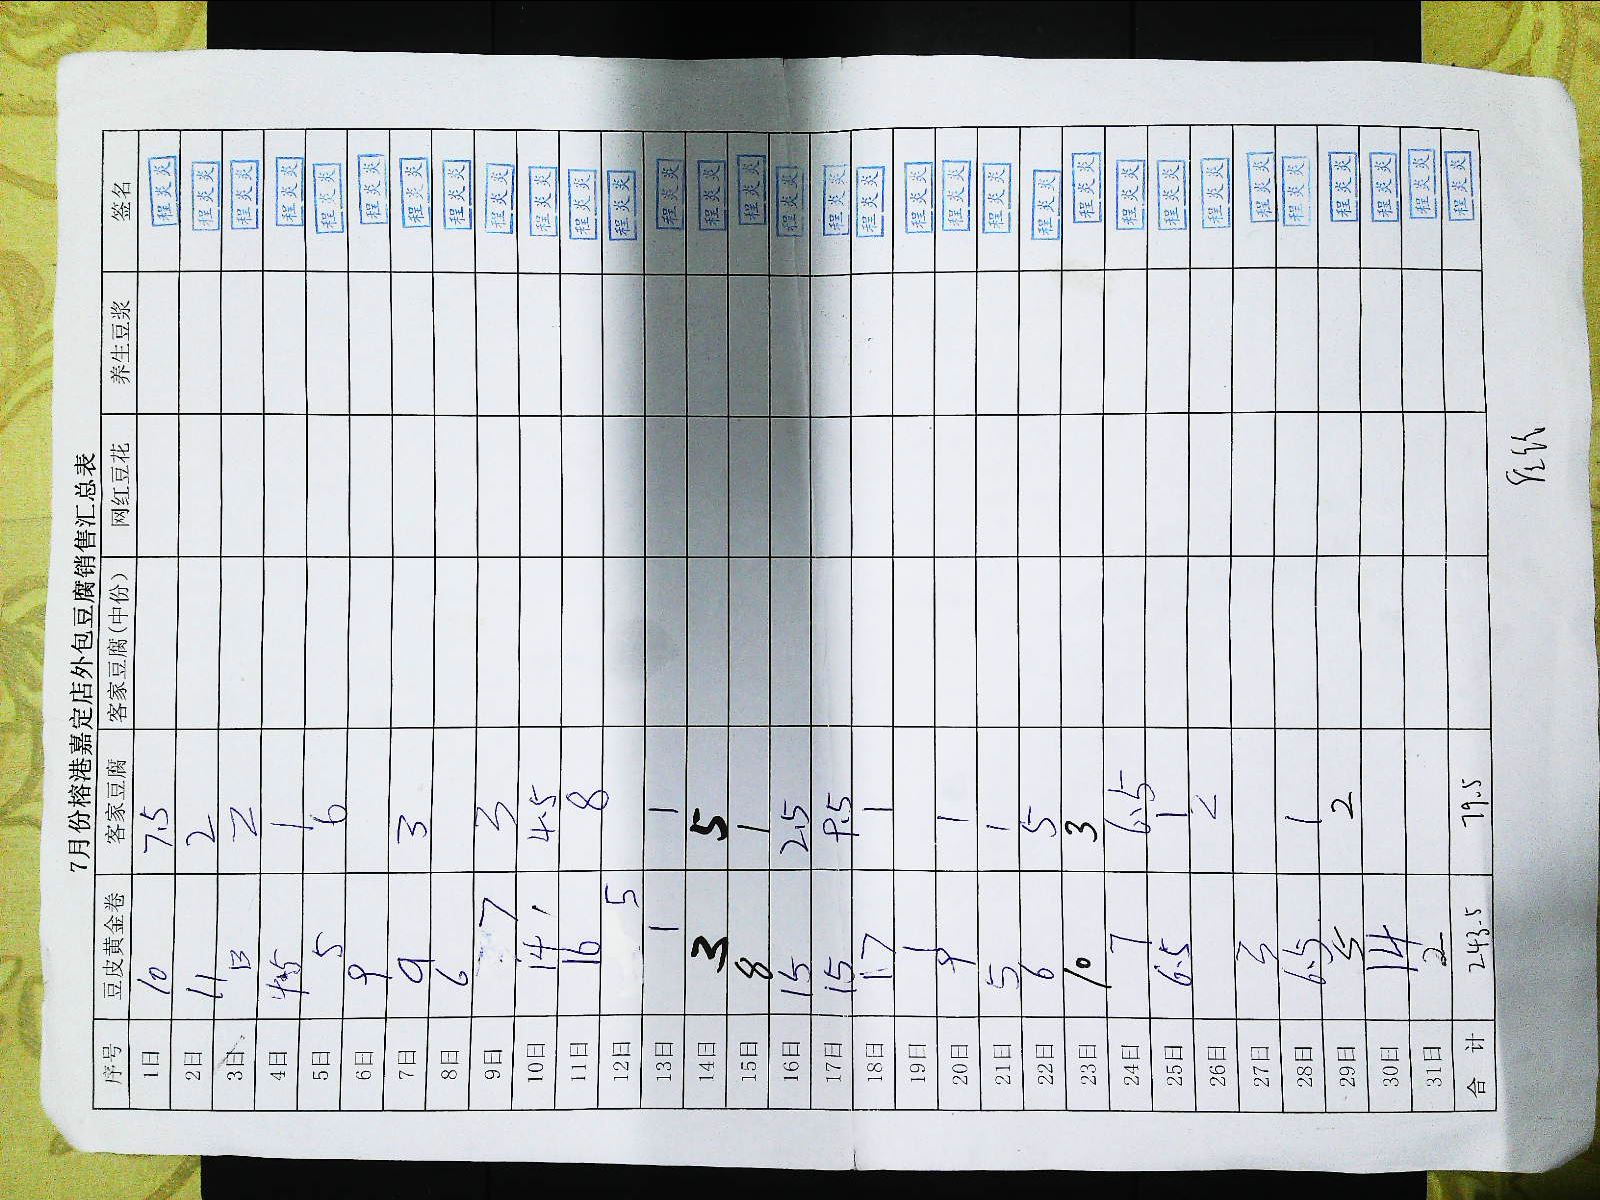 7月份榕港嘉定店外包豆腐销售汇总表
序号 豆皮黄金卷 客家豆腐 客家豆腐(中份) 网红豆花 养生豆浆 签名
1日 10 7.5 程炎炎
2日 11 2 程炎炎
3日 13 2 程炎炎
4日 4.5 1 程炎炎
5日 5 6 程炎炎
6日 9 程炎炎
7日 9 3 程炎炎
8日 6 程炎炎
9日 7 3 程炎炎
10日 14 4.5 程炎炎
11日 16 8 程炎炎
12日 5 程炎炎
13日 1 1 程炎炎
14日 3 5 程炎炎
15日 8 1 程炎炎
16日 15 2.5 程炎炎
17日 15 9.5 程炎炎
18日 17 1 程炎炎
19日 1 程炎炎
20日 9 1 程炎炎
21日 5 1 程炎炎
22日 6 5 程炎炎
23日 10 3 程炎炎
24日 7 6.5 程炎炎
25日 6.5 1 程炎炎
26日 2 程炎炎
27日 3 程炎炎
28日 6.5 1 程炎炎
29日 5 2 程炎炎
30日 14 程炎炎
31日 2 程炎炎
合 计 243.5 79.5 程炎炎